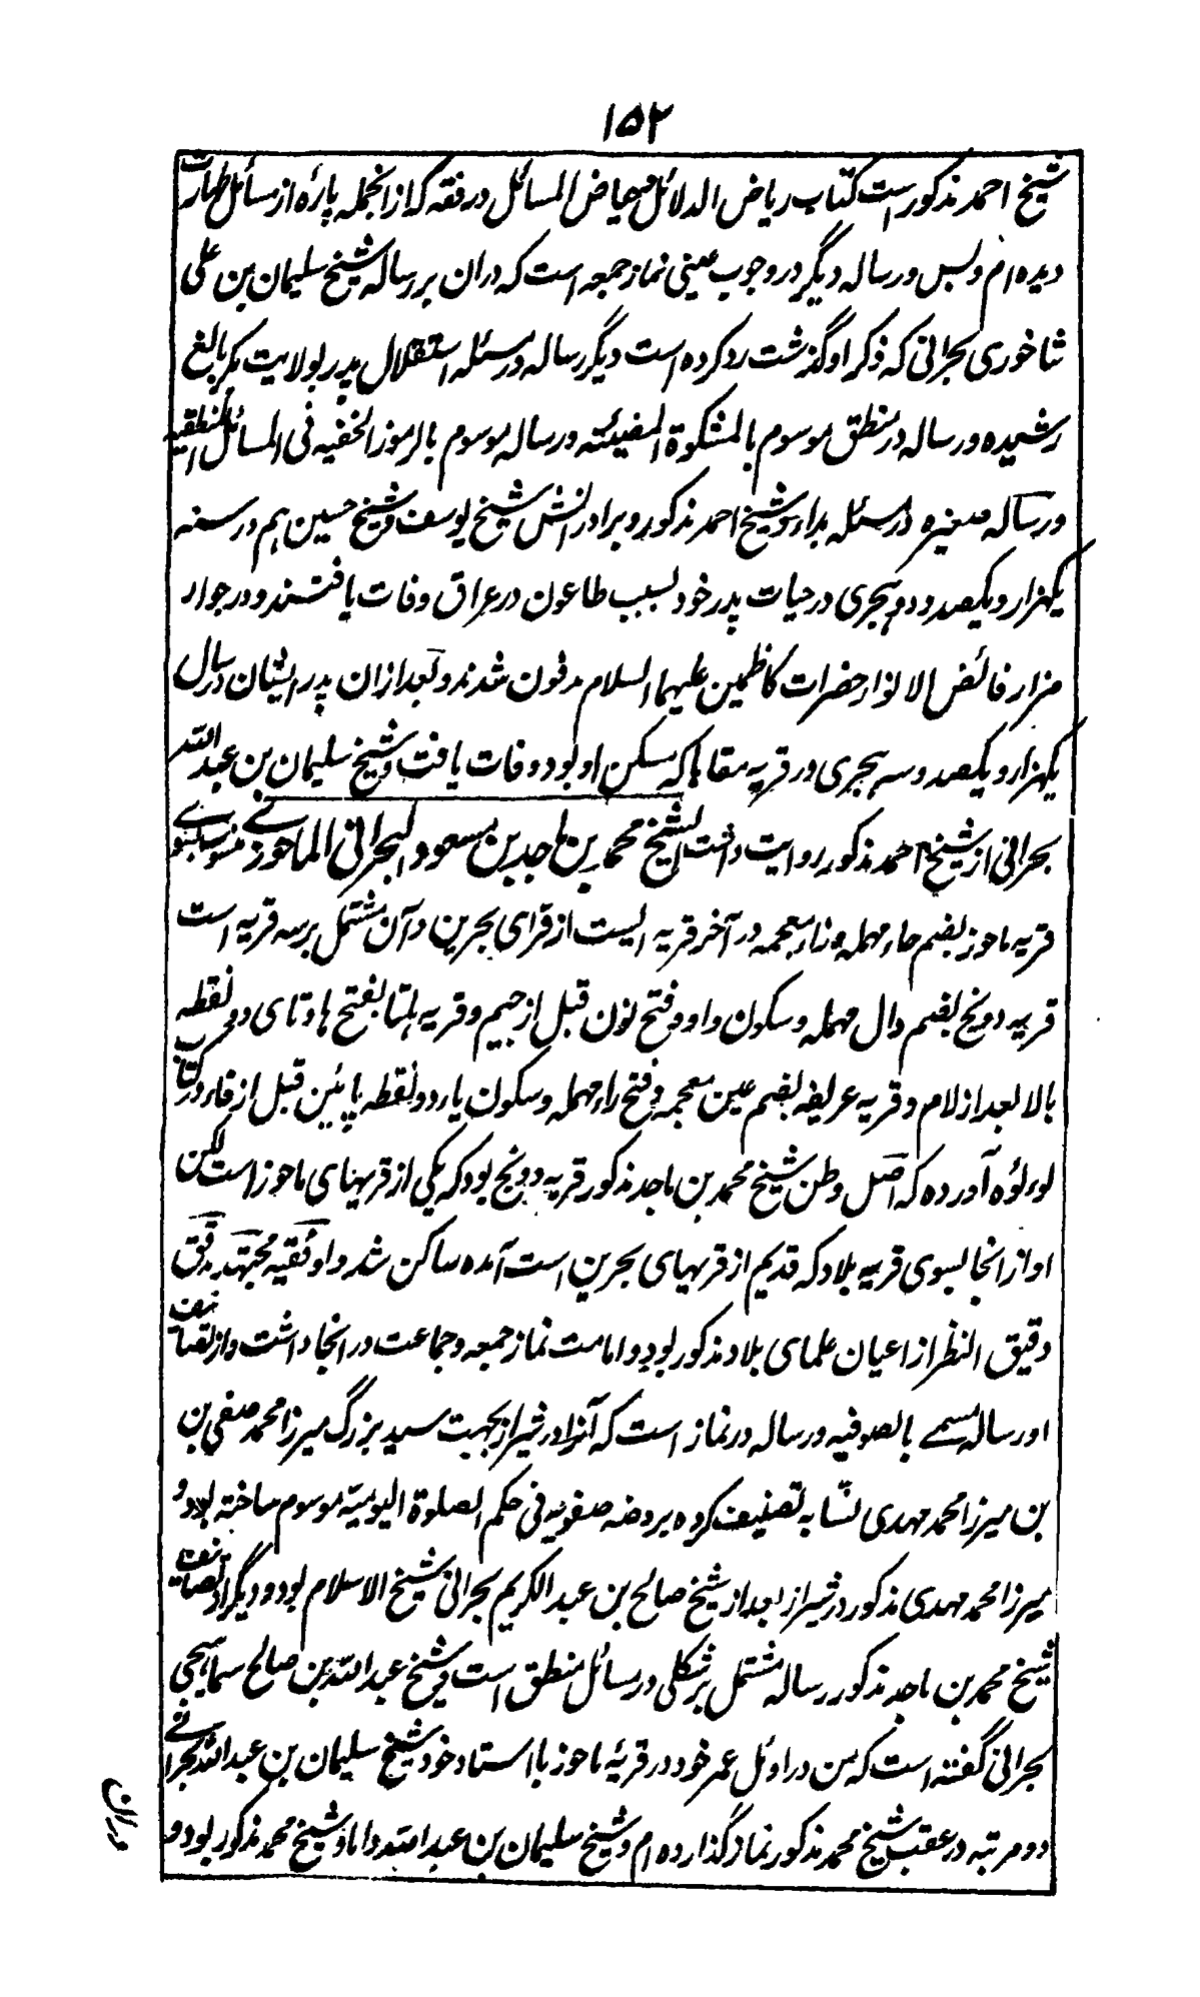 ۱۵۲
شیخ احمد مذکور است کتاب ریاض الدلائل و حیاض المسائل در فقه که از انجمله پارهٔ از مسائل طهارت
دیده ام و بس و رساله دیگر در وجوب عینی نماز جمعه است که در ان بر رساله شیخ سلیمان بن علی
شاخوری بحرانی که ذکر او گذشت رد کرده است دیگر رساله در مسئله استقلال پدر بولایت بکر بالغ
رشیده و رساله در منطق موسوم بالمشکوة المضیئة و رساله موسوم بالرموز الخفیه فی المسائل المنطقیه
و رساله صغیره در مسئله بداء و شیخ احمد مذکور و برادرانش شیخ یوسف و شیخ حسین هم در سنه
یکهزار و یکصد و دو هجری در حیات پدر خود بسبب طاعون در عراق وفات یافتند و در جوار
مزار فائض الانوار حضرات کاظمین علیهما السلام مدفون شدند و بعد ازان پدر ایشان در سال
یکهزار و یکصد و سه هجری در قریه مقابا که مسکن او بود وفات یافت و شیخ سلیمان بن عبد الله
بحرانی از شیخ احمد مذکور روایت داشت الشیخ محمد بن ماجد بن مسعود البحرانی الماحوزی منسوب بسوے
قریه ماحوز بضم حاء مهمله و زاء معجمه در آخر قریه ایست از قرای بحرین و آن مشتمل بر سه قریه است
قریه دونج بضم دال مهمله و سکون واو و فتح نون قبل از جیم و قریه هلتا بفتح ها و تای دو نقطه
بالا بعد از لام و قریه غریفه بضم عین معجمه و فتح راء مهمله و سکون یاء دو نقطه پائین قبل از فاء و در کتاب
لوءلوه آورده که اصل وطن شیخ محمد بن ماجد مذکور قریه دونج بود که یکی از قریهای ماحوز است لکن
او از انجا بسوی قریه بلاد که قدیم از قریهای بحرین است آمده ساکن شد و او فقیه مجتهد مدقق
دقیق النظر از اعیان علمای بلاد مذکور بود و امامت نماز جمعه و جماعت در انجا داشت و از تصانیف
او رساله مسمے بالصوفیه و رساله در نماز است که آنرا در شیراز بجهت سید بزرگ میرزا محمد صفی بن
بن میرزا محمد مهدی نسّابه تصنیف کرده بروضه صفویه فی حکم الصلوة الیومیه موسوم ساخته بود و
میرزا محمد مهدی مذکور در شیراز بعد از شیخ صالح بن عبد الکریم بحرانی شیخ الاسلام بود و دیگر از تصانیف
شیخ محمد بن ماجد مذکور رساله مشتمل بر شکلی در رسائل منطق است و شیخ عبد الله بن صالح سماهیجی
بحرانی گفته است که من در اوئل عمر خود در قریهٔ ماحوز با استاد خود شیخ سلیمان بن عبد الله بحرانی
دو مرتبه در عقب شیخ محمد مذکور نماز گذارده ام و شیخ سلیمان بن عبد الله داماد شیخ محمد مذکور بود و
دران